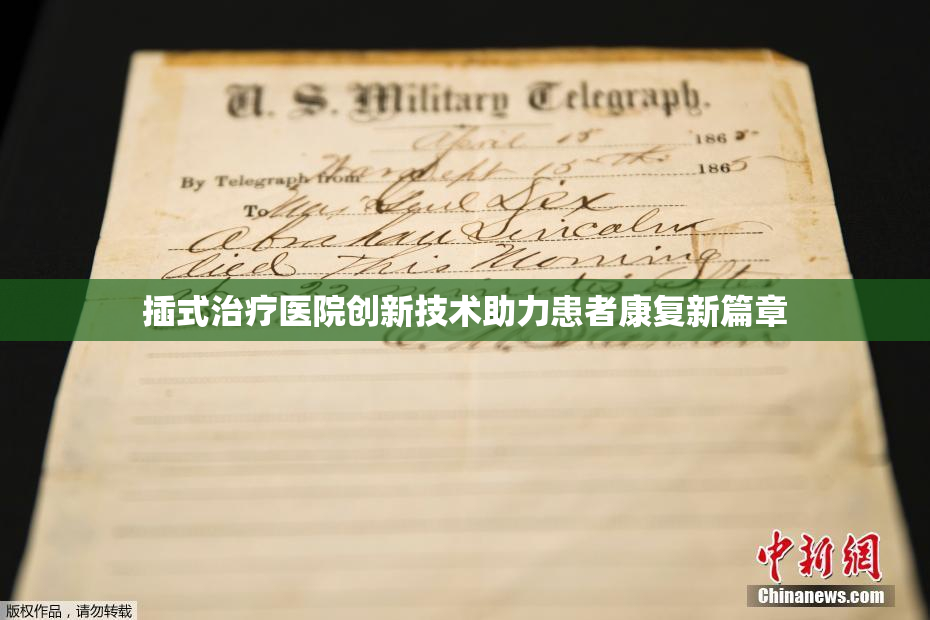 U. S. Military Telegraph.
April 15 1865
By Telegraph from War Dept 15th 1865
To Maj Genl Dix
Abraham Lincoln
died This Morning
at 22 minutes after
插式治疗医院创新技术助力患者康复新篇章
E. M. Stanton
中新網
Chinanews.com
版权作品，请勿转载